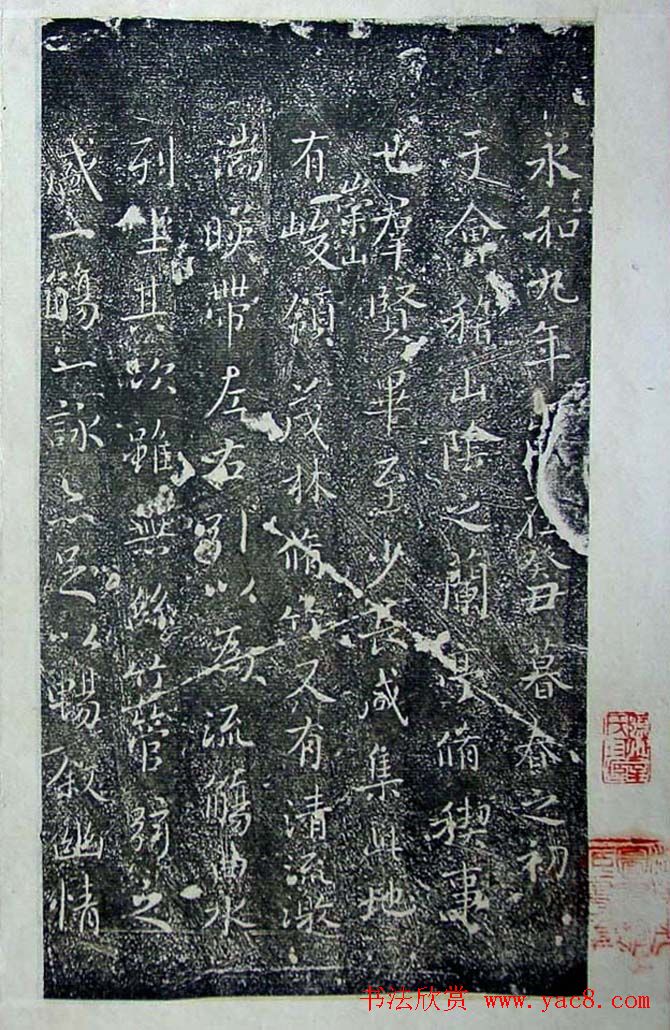 永和九年在癸丑暮春之初
于會稽山陰之蘭亭脩稧事
也羣賢畢至少長咸集此地
有崇山峻領茂林脩竹又有清流激
湍暎帶左右引以為流觴曲水
列坐其次雖無絲竹管弦之
盛一觴一詠亦足以暢敘幽情
书法欣赏 www.yac8.com